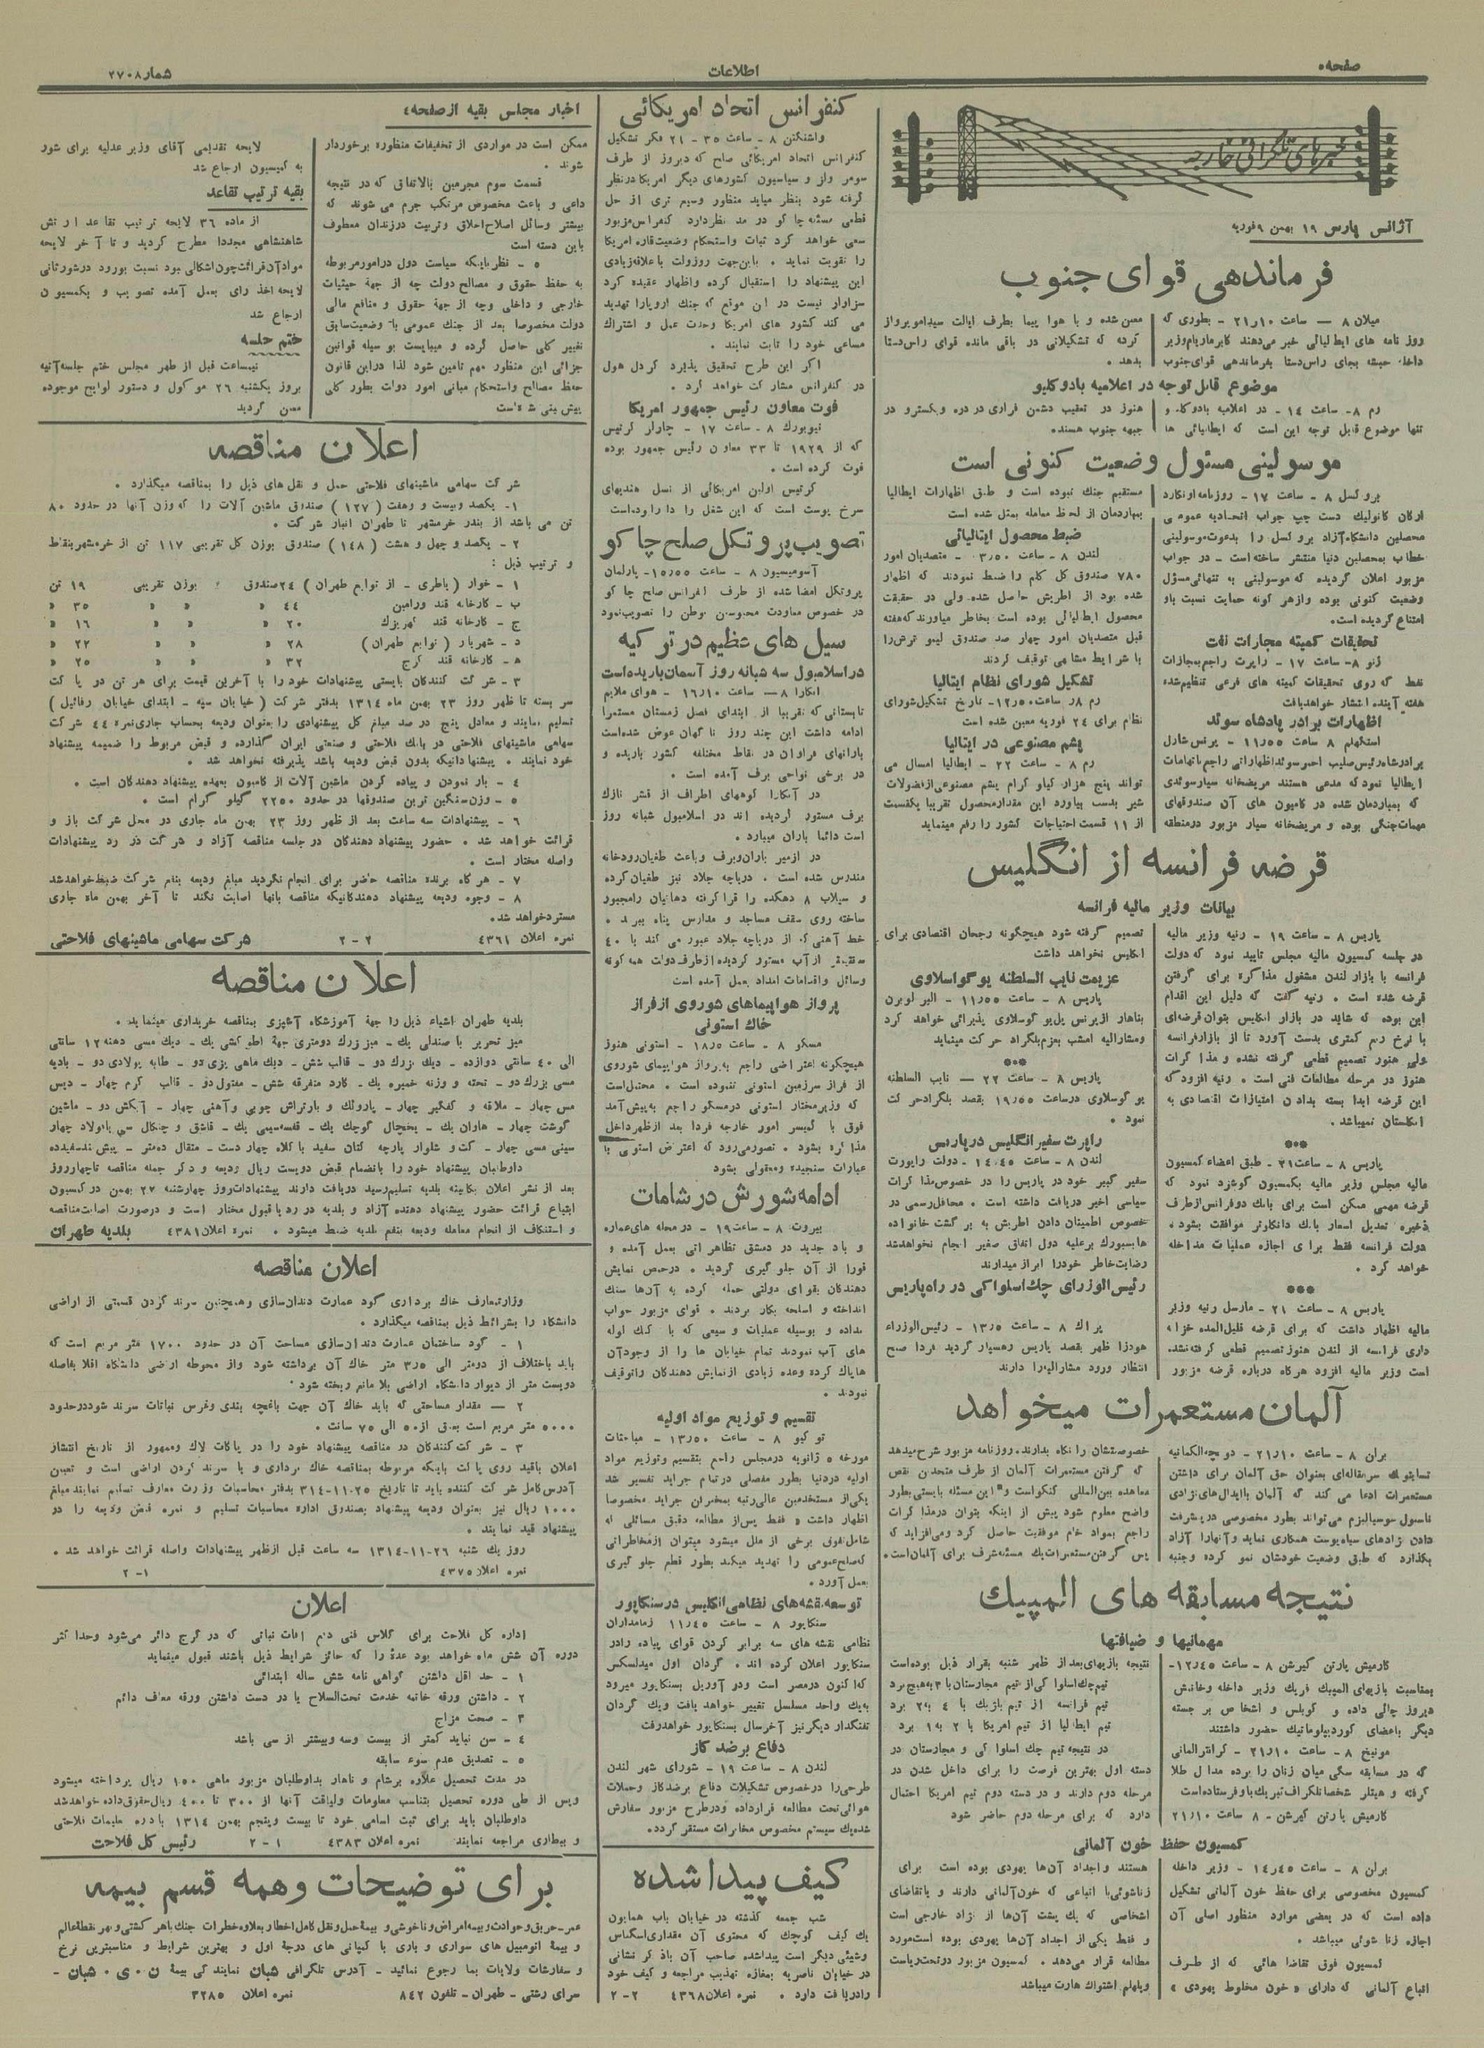 صفحه۵
اطلاعات
شماره۲۷۰۸
خبرهای تلگرافی خارجه
آژانس پارس ۱۹ بهمن ۸فوریه
فرماندهی قوای جنوب
میلان ۸ — ساعت ۲۱٫۱۰ - بطوری که
روز نامه های ایطالیائی خبر می‌دهند
معین شده و با هوا پیما بطرف ایالت سیدامو پرواز
کرده که تشکیلاتی در باقی مانده قوای راس‌دستا
بدهد.
موضوع قابل توجه در اعلامیه بادوگلیو
رم ۸- ساعت ۱۴ - در اعلامیه بادوگلیو
تنها موضوع قابل توجه این است که ایطالیائی ها
هنوز در تعقیب دشمن فراری در دره و
جبهه جنوب هستند.
موسولینی مسئول وضعیت کنونی است
بروکسل ۸ - ساعت ۱۷ - روزنامه اوانگارد
ارگان کاتولیک دست چپ جواب اتحادیه عمومی
محصلین دانشگاه آزاد بروکسل را بدعوت موسولینی
خطاب بمحصلین دنیا منتشر ساخته است - در جواب
مزبور اعلان گردیده که موسولینی به تنهائی مسئول
وضعیت کنونی بوده وازهر گونه حمایت نسبت باو
امتناع گردیده است.
تحقیقات کمیته مجازات نفت
ژنو ۸- ساعت ۱۷ - راپرت راجع بمجازات
نفط که روی تحقیقات کمیته های فرعی تنظیم‌شده
هفته آینده انتشار خواهد یافت
اظهارات برادر پادشاه سوئد
استکهلم ۸ ساعت ۱۱٫۵۵ - پرنس شارل
برادرشاه رئیس صلیب احمر سوئد اظهاراتی راجع باتهامات
ایطالیا نمود که مدعی هستند مریضخانه سیار سوئدی
که بمباردمان شده در کامیون های آن صندوقهای
مهمات جنگی بوده و مریضخانه سیار مزبور در منطقه
مستقیم جنگ نبوده است و طبق اظهارات ایطالیا
بمباردمان از لحظ معامله بمثل شده است
ضبط محصول ایتالیائی
لندن ۸ - ساعت ۳٫۵۰ - متصدیان امور
۷۸۰ صندوق گل کلم را ضبط نمودند که اظهار
شده بود از اطریش حاصل شده. ولی در حقیقت
محصول ایطالیائی بوده است بخاطر میاورند که هفته
قبل متصدیان امور چهار صد صندوق لیمو ترش را
با شرایط مشابهی توقیف کردند
تشکیل شورای نظام ایتالیا
رم ۸ر ساعت ۱۲٫۵۰- تاریخ تشکیل شورای
نظام برای ۲۴ فوریه معین شده است
پشم مصنوعی در ایتالیا
رم ۸ - ساعت ۲۲ - ایطالیا امسال می
تواند پنج هزار کیلو گرام پشم مصنوعی از فضولات
شیر بدست بیاورد این مقدار محصول تقریبا یکقسمت
از ۱۱ قسمت احتیاجات کشور را رفع مینماید
قرضه فرانسه از انگلیس
بیانات وزیر مالیه فرانسه
پاریس ۸ - ساعت ۱۹ - رنیه وزیر مالیه
در جلسه کمسیون مالیه مجلس تایید نمود که دولت
فرانسه با بازار لندن مشغول مذاکره برای گرفتن
قرضه شده است . رنیه گفت که دلیل این اقدام
این بوده که شاید در بازار انگلیس بتوان قرضه‌ای
با نرخ ربع کمتری بدست آورد تا از بازار فرانسه
ولی هنوز تصمیم قطعی گرفته نشده و مذاکرات
هنوز در مرحله مطالعات فنی است . رنیه افزود که
این قرضه ابدا بسته بدادن امتیازات اقتصادی به
انگلستان نمیباشد.
***
پاریس ۸ - ساعت۲۱ - طبق اعضاء کمسیون
مالیه مجلس وزیر مالیه بکمسیون گوشزد نمود که
قرضه مهمی ممکن است برای بانک دوفرانس از طرف
ذخیره تعدیل اسعار بانک دانگلوتر موافقت بشود.
دولت فرانسه فقط برای اجازه عملیات مداخله
خواهد کرد .
***
پاریس ۸ - ساعت ۲۱ - مارسل رنیه وزیر
مالیه اظهار داشت که برای قرضه قلیل‌المده خزانه
داری فرانسه از لندن هنوز تصمیم قطعی گرفته نشده
است وزیر مالیه افزود هرگاه درباره قرضه مزبور
تصمیم گرفته شود هیچگونه رجحان اقتصادی برای
انگلیس نخواهد داشت
عزیمت نایب السلطنه یوگواسلاوی
پاریس ۸ - ساعت ۱۱٫۵۵ - البر لوبرن
بناهار از پرنس پل یوگوسلاوی پذیرائی خواهد کرد
ومشارالیه امشب بعزم بلگراد حرکت مینماید
***
پاریس ۸ - ساعت ۲۲ — نایب السلطنه
یوگوسلاوی در ساعت ۱۹٫۵۵ بقصد بلگراد حرکت
نمود .
راپرت سفیر انگلیس در پاریس
لندن ۸ - ساعت ۱۴٫۴۵ - دولت راپورت
سفیر کبیر خود در پاریس را در خصوص مذاکرات
سیاسی اخیر دریافت داشته است . محافل رسمی در
خصوص اطمینان دادن اطریش به بر گشت خانواده
هابسبورک برعلیه دول اتفاق صغیر انجام نخواهد شد
رضایت خاطر خود را ابراز میدارند
رئیس الوزرای چک‌اسلواکی در راه پاریس
پراک ۸ - ساعت ۱۳٫۵ - رئیس الوزراء
هودزا ظهر بقصد پاریس رهسپار گردید فردا صبح
انتظار ورود مشارالیه را دارند
آلمان مستعمرات میخواهد
برلن ۸ - ساعت ۲۱٫۱۰ - دویچه الگمانیه
تسایتونگ سرمقاله‌ای بعنوان حق آلمان برای داشتن
مستعمرات ادعا می کند که آلمان با ایدال های نژادی
ناسیونال سوسیالیزم می‌تواند بطور مخصوصی در پیشرفت
دادن نژادهای سیاه پوست همکاری نماید وآنهارا آزاد
بگذارد که طبق وضعیت خودشان نمو کرده وجنبه
خصوصیتشان را نگاه بدارند. روزنامه مزبور شرح میدهد
که گرفتن مستعمرات آلمان از طرف متحدین نقض
معاهده بین‌المللی کنگو است و «این مسئله بایستی بطور
واضح معلوم شود پیش از اینکه بتوان در مذاکرات
راجع بمواد خام موفقیت حاصل کرد ومی‌افزاید که
پس گرفتن مستعمرات یک مسئله شرف برای آلمان است.
نتیجه مسابقه های المپیک
مهمانیها و ضیافتها
گارمیش پارتن کیرشن ۸ - ساعت ۱۲٫۴۵-
بمناسبت بازیهای المپیک فریک وزیر داخله وخانمش
دیروز چائی داده و گوبلس و اشخاص بر جسته
دیگر با اعضای کوردیپلوماتیک حضور داشتند
مونیخ ۸ - ساعت ۲۱٫۱۰ - کرانتر آلمانی
که در مسابقه سکی میان زنان را برده مدال طلا
گرفته و هیتلر شخصا تلگراف تبریک باو فرستاده است
گارمیش پارتن کیرشن - ۸ ساعت ۲۱٫۱۰
نتیجه بازیهای بعد از ظهر شنبه بقرار ذیل بوده است
تیم چک اسلواکی از تیم مجارستان با ۳ به هیچ برد
تیم فرانسه از تیم بلژیک با ۴ به ۲ برد
تیم ایطالیا از تیم امریکا با ۲ به ۱ برد
در نتیجه تیم چک اسلواکی و مجارستان در
دسته اول بهترین فرصت را برای داخل شدن در
مرحله دوم دارند و در دسته دوم تیم امریکا احتمال
دارد که برای مرحله دوم حاضر شود
کمسیون حفظ خون آلمانی
برلن ۸ - ساعت ۱۴٫۴۵ - وزیر داخله
کمسیون مخصوصی برای حفظ خون آلمانی تشکیل
داده است که در بعضی موارد منظور اصلی آن
اجازه زناشوئی میباشد .
کمسیون فوق تقاضاهائی که از طرف
اتباع آلمانی که دارای «خون مخلوط یهودی»
هستند واجداد آن‌ها یهودی بوده است برای
زناشوئی با اتباعی که خون آلمانی دارند و یا تقاضای
اشخاصی که یک پشت آن‌ها از نژاد خارجی است
و فقط یکی از اجداد آن‌ها یهودی بوده است مورد
مطالعه قرار می‌دهد . کمسیون مزبور در تحت ریاست
ویلهلم اشتوک هارت میباشد
کنفرانس اتحاد امریکائی
واشنگتن ۸ - ساعت ۳۵ - ۲۱ فکر تشکیل
کنفرانس اتحاد امریکائی صلح که دیروز از طرف
سومر ولز و سیاسیون کشورهای دیگر امریکا در نظر
گرفته شود بنظر میاید منظور وسیع تری از حل
قطعی مسئله چاکو در مد نظر دارد کنفرانس مزبور
سعی خواهد کرد ثبات واستحکام وضعیت قاره امریکا
را تقویت نماید . باین‌جهت روزولت با علاقه زیادی
این پیشنهاد را استقبال کرده واظهار عقیده کرد
سزاوار نیست در این موقع که جنگ اروپا را تهدید
می کند کشور های امریکا وحدت عمل و اشتراک
مساعی خود را ثابت نمایند .
اگر این طرح تحقیق پذیرد کردل هول
در کنفرانس مشارکت خواهد کرد .
فوت معاون رئیس جمهور امریکا
نیویورک ۸ - ساعت ۱۷ - چارلز کرتیس
که از ۱۹۲۹ تا ۳۳ معاون رئیس جمهور بوده
فوت کرده است .
کرتیس اولین امریکائی از نسل هندیهای
سرخ پوست است که این شغل را دارا بوده است
تصویب پروتکل صلح چاکو
آسومسیون ۸ - ساعت ۱۵٫۵۵ - پارلمان
پروتکل امضا شده از طرف کنفرانس صلح چاکو
در خصوص معاودت محبوسین بوطن را تصویب نمود
سیل های عظیم در ترکیه
در اسلامبول سه شبانه روز آسمان باریده است
انکارا ۸ — ساعت ۱۶٫۱۰ - هوای ملایم
تابستانی که تقریبا از ابتدای فصل زمستان مستمرا
ادامه داشت این چند روز ناگهان عوض شده است
بارانهای فراوان در نقاط مختلفه کشور باریده و
در برخی نواحی برف آمده است .
در آنکارا کوههای اطراف از قشر نازک
برف مستور گردیده اند در اسلامبول شبانه روز
است دائما باران میبارد .
در ازمیر باران وبرف وباعث طغیان رودخانه
مندرس شده است . دریاچه جلاد نیز طغیان کرده
و سیلاب ۸ دهکده را فرا گرفته دهاتیان را مجبور
ساخته روی سقف مساجد و مدارس پناه ببرند .
خط آهنی که از دریاچه جلاد عبور می کند با ۴۰
سانتیمتر از آب مستور گردیده از طرف دولت همه گونه
وسائل واقدامات امداد بعمل آمده است
پرواز هواپیماهای شوروی از فراز
خاک استونی
مسکو ۸ - ساعت ۱۸٫۵ - استونی هنوز
هیچگونه اعتراضی راجع به پرواز هواپیمای شوروی
از فراز سرزمین استونی ننموده است . محتمل است
که وزیر مختار استونی در مسکو راجع به پیش آمد
فوق با کمیسر امور خارجه فردا بعد از ظهر داخل
مذاکره بشود . تصور می‌رود که اعتراض استونی با
عبارات سنجیده ومعقولی بشود
ادامه شورش در شامات
بیروت ۸ - ساعت ۱۹ - در محله های عماره
و باد جدید در دمشق تظاهراتی بعمل آمده و
فورا از آن جلوگیری گردید . در حمص نمایش
دهندگان بقوای دولتی حمله کرده به آن‌ها سنگ
انداخته و اسلحه بکار بردند . قوای مزبور جواب
نداده و بوسیله عملیات وسیعی که با کمک لوله
های آب نمودند تمام خیابان ها را از وجود آن
ها پاک کرده وعده زیادی از نمایش دهندگان را توقیف
نمودند .
تقسیم و توزیع مواد اولیه
توکیو ۸ - ساعت ۱۳٫۵۰ - مباحثات
مورخه ۵ ژانویه در مجلس راجع بتقسیم وتوزیع مواد
اولیه در دنیا بطور مفصلی در تمام جراید تفسیر شد
یکی از مستخدمین عالی‌رتبه بمخبران جراید مخصوصا
اظهار داشت « فقط پس از مطالعه دقیق مسائلی که
شامل تفوق برخی از ملل میشود میتوان از مخاطراتی
که صلح عمومی را تهدید میکند بطور قطع جلوگیری
بعمل آورد .
توسعه نقشه‌های نظامی انگلیس در سنگاپور
سنگاپور ۸ - ساعت ۱۱٫۴۵ زمامداران
نظامی نقشه های سه برابر کردن قوای پیاده را در
سنگاپور اعلان کرده اند . گردان اول میدلسکس
که اکنون در مصر است و در آوریل بسنگاپور میرود
به یک واحد مسلسل تغییر خواهد یافت ویک گردان
تفنگدار دیگر نیز آخر سال بسنگاپور خواهد رفت
دفاع بر ضد گاز
لندن ۸ - ساعت ۱۹ - شورای شهر لندن
طرحی را در خصوص تشکیلات دفاع بر ضد گاز وحملات
هوائی تحت مطالعه قرار داده و در طرح مزبور سفارش
شده یک سیستم مخصوص مخابرات مستقر گردد.
کیف پیدا شده
شب جمعه گذشته در خیابان باب همایون
یک کیف کوچک که محتوی آن مقداری اسکناس
وشیئی دیگر است پیدا شده صاحب آن با ذکر نشانی
در خیابان ناصریه بمغازه تهذیب مراجعه و کیف خود
را دریافت دارد . نمره اعلان ۴۳۶۸ ۲-۲
اخبار مجلس بقیه از صفحه ۴
ممکن است در مواردی از تخفیفات منظوره برخوردار
شوند .
قسمت سوم مجرمین بالاتفاق که در نتیجه
داعی و باعث مخصوص مرتکب جرم می شوند که
بیشتر وسائل اصلاح اخلاق وتربیت درزندان معطوف
باین دسته است
۵ - نظر باینکه سیاست دول در امور مربوطه
به حفظ حقوق و مصالح دولت چه از جهة حیثیات
خارجی و داخلی وچه از جهة حقوق و منافع مالی
دولت مخصوصا بعد از جنگ عمومی با وضعیت سابق
تغییر کلی حاصل کرده و میبایست بوسیله قوانین
جزائی این منظور مهم تامین شود لذا در این قانون
حفظ مصالح واستحکام مبانی امور دولت بطور کلی
پیش بینی شده است
لایحه تقدیمی آقای وزیر عدلیه برای شور
به کمیسیون ارجاع شد
بقیه ترتیب تقاعد
از ماده ۳۶ لایحه ترتیب تقاعد ارتش
شاهنشاهی مجددا مطرح گردید و تا آخر لایحه
مواد آن قرائت چون اشکالی نبود نسبت بورود در شور ثانی
لایحه اخذ رای بعمل آمده تصویب و بکمسیون
ارجاع شد
ختم جلسه
نیمساعت قبل از ظهر مجلس ختم جلسه آتیه
بروز یکشنبه ۲۶ موکول و دستور لوایح موجوده
معین گردید
اعلان مناقصه
شرکت سهامی ماشینهای فلاحتی حمل و نقل های ذیل را بمناقصه میگذارد .
۱- یکصد وبیست و وهفت (۱۲۷) صندوق ماشین آلات را که وزن آنها در حدود ۸۰
تن می باشد از بندر خرمشهر تا طهران انبار شرکت .
۲ - یکصد و چهل و هشت (۱۴۸) صندوق بوزن کل تقریبی ۱۱۷ تن از خرمشهر بنقاط
و ترتیب ذیل :
۱ - خوار (یاطری - از توابع طهران) ۲۴ صندوق بوزن تقریبی ۱۹ تن
ب - کارخانه قند ورامین ۴۴ » » » ۳۵ »
ج - کارخانه قند کهریزک ۲۰ » » » ۱۶ »
د - شهریار (توابع طهران) ۲۸ » » » ۲۲ »
ه - کارخانه قند کرج ۳۲ » » » ۲۵ »
۳ - شرکت کنندگان بایستی پیشنهادات خود را با آخرین قیمت برای هر تن در پاکت
سر بسته تا ظهر روز ۲۳ بهمن ماه ۱۳۱۴ بدفتر شرکت (خیابان سپه - ابتدای خیابان رفائیل)
تسلیم نمایند و معادل پنج در صد مبلغ کل پیشنهادی را بعنوان ودیعه بحساب جاری نمره ۴۴ شرکت
سهامی ماشینهای فلاحتی در بانک فلاحتی و صنعتی ایران گذارده و قبض مربوط را ضمیمه پیشنهاد
خود نمایند . پیشنهاداتیکه بدون قبض ودیعه باشد پذیرفته نخواهد شد .
۴ - بار نمودن و پیاده کردن ماشین آلات از کامیون بعهده پیشنهاد دهندگان است .
۵ - وزن سنگین ترین صندوقها در حدود ۲۲۵۰ کیلو گرام است .
۶ - پیشنهادات سه ساعت بعد از ظهر روز ۲۳ بهمن ماه جاری در محل شرکت باز و
قرائت خواهد شد . حضور پیشنهاد دهندگان در جلسه مناقصه آزاد و شرکت در رد پیشنهادات
واصله مختار است .
۷ - هر گاه برنده مناقصه حاضر برای انجام نگردید مبلغ ودیعه بنفع شرکت ضبط خواهد شد
۸ - وجوه ودیعه پیشنهاد دهندگانیکه مناقصه بانها اصابت نکند تا آخر بهمن ماه جاری
مسترد خواهد شد.
نمره اعلان ۴۳۶۱ ۲-۲ شرکت سهامی ماشینهای فلاحتی
اعلان مناقصه
بلدیه طهران اشیاء ذیل را جهة آموزشگاه آشپزی بمناقصه خریداری مینماید .
میز تحریر با صندلی یک - میز بزرگ دومتری جهة اطو کشی یک - دیک مسی دهنه ۱۲ سانتی
الی ۴۰ سانتی دوازده - دیک بزرک دو - قالب شش - دیک ماهی پزی دو - طابه پولادی دو - بادیه
مسی بزرک دو - تخته و وزنه خمیره یک - کارد متفرقه شش - مفتول دو - قالب کرم چهار - دیس
مس چهار - ملاقه و کفگیر چهار - پارونک و بارتراش چوبی وآهنی چهار - آبکش دو - ماشین
گوشت چهار - هاون یک - یخچال کوچک یک - قفسه سیمی یک - قاشق و چنگال سی با اولاد چهار
سینی مسی چهار - کت و شلوار پارچه کتان سفید با کلاه چهار دست - منقال دو متر - پیش بند سفید ده
داوطلبان پیشنهاد خود را بانضمام قبض دویست ریال ودیعه و ذکر جمله مناقصه تا چهار روز
بعد از نشر اعلان بکابینه بلدیه تسلیم رسید دریافت دارند پیشنهادات روز چهارشنبه ۲۷ بهمن در کمسیون
ابتیاع قرائت حضور پیشنهاد دهنده آزاد و بلدیه در رد یا قبول مختار است و در صورت اصابت مناقصه
و استنکاف از انجام معامله ودیعه بنفع بلدیه ضبط میشود . نمره اعلان ۴۳۸۱ بلدیه طهران
اعلان مناقصه
وزارت معارف خاک برداری گود عمارت دندان‌سازی وهمچنین سرند کردن قسمتی از اراضی
دانشگاه را بشرائط ذیل بمناقصه میگذارد .
۱ - گود ساختمان عمارت دندان‌سازی مساحت آن در حدود ۱۷۰۰ متر مربع است که
باید باختلاف از دو متر الی ۳٫۵ متر خاک آن برداشته شود واز محوطه ارضی دانشگاه اقلا بفاصله
دویست متر از دیوار دانشگاه اراضی بلا مانع ریخته شود .
۲ — مقدار مساحتی که باید خاک آن جهت باغچه بندی وغرس نباتات سرند شود در حدود
۵۰۰۰ متر مربع است بعمق از ۵۰ الی ۷۵ سانت .
۳ - شرکت کنندگان در مناقصه پیشنهاد خود را در پاکات لاک وممهور از تاریخ انتشار
اعلان باقید روی پاکت باینکه مربوطه بمناقصه خاک برداری و یا سرند کردن اراضی است و تعیین
آدرس کامل شرکت کننده باید تا تاریخ ۲۵-۱۱-۳۱۴ بدفتر محاسبات وزارت معارف تسلیم نمایند مبلغ
۱۰۰۰ ریال نیز بعنوان ودیعه پیشنهاد بصندوق اداره محاسبات تسلیم و نمره قبض ودیعه را در
پیشنهاد قید نمایند .
روز یک شنبه ۲۶-۱۱-۱۳۱۴ سه ساعت قبل از ظهر پیشنهادات واصله قرائت خواهد شد .
نمره اعلان ۴۳۷۵ ۱-۲
اعلان
اداره کل فلاحت برای کلاس فنی دفع آفات نباتی که در کرج دائر می‌شود وحداکثر
دوره آن شش ماه خواهد بود عدهٔ را که حائز شرایط ذیل باشند قبول مینماید
۱ - حد اقل داشتن گواهی نامه شش ساله ابتدائی
۲ - داشتن ورقه خاتمه خدمت تحت‌السلاح یا در دست داشتن ورقه معاف دائم
۳ - صحت مزاج
۴ - سن نباید کمتر از بیست وسه وبیشتر از سی باشد
۵ - تصدیق عدم سوء سابقه
در مدت تحصیل علاوه برشام و ناهار بداوطلبان مزبور ماهی ۱۵۰ ریال پرداخته میشود
وپس از طی دوره تحصیل بتناسب معلومات ولیاقت آنها از ۳۰۰ تا ۴۰۰ ریال حقوق داده خواهد شد
داوطلبان باید برای ثبت اسامی خود تا بیست وپنجم بهمن ۱۳۱۴ باداره تعلیمات فلاحتی
و بیطاری مراجعه نمایند نمره اعلان ۴۳۸۳ ۱-۲ رئیس کل فلاحت
برای توضیحات وهمه قسم بیمه
عمر-حریق وحوادث وبیمه امراض وناخوشی و بیمهٔ حمل ونقل کامل اخطار بعلاوه خطرات جنگ باهر کشتی و بهر نقطهٔ عالم
و بیمهٔ اتومبیل های سواری و باری با کمپانی های درجهٔ اول و بهترین شرایط و مناسبترین نرخ
و سفارشات ولایات بما رجوع نمائید - آدرس تلگرافی شبان نمایندگی بیمهٔ ن . ی . شبان -
سرای رشتی - طهران - تلفون ۸۴۲ نمره اعلان ۳۲۸۵